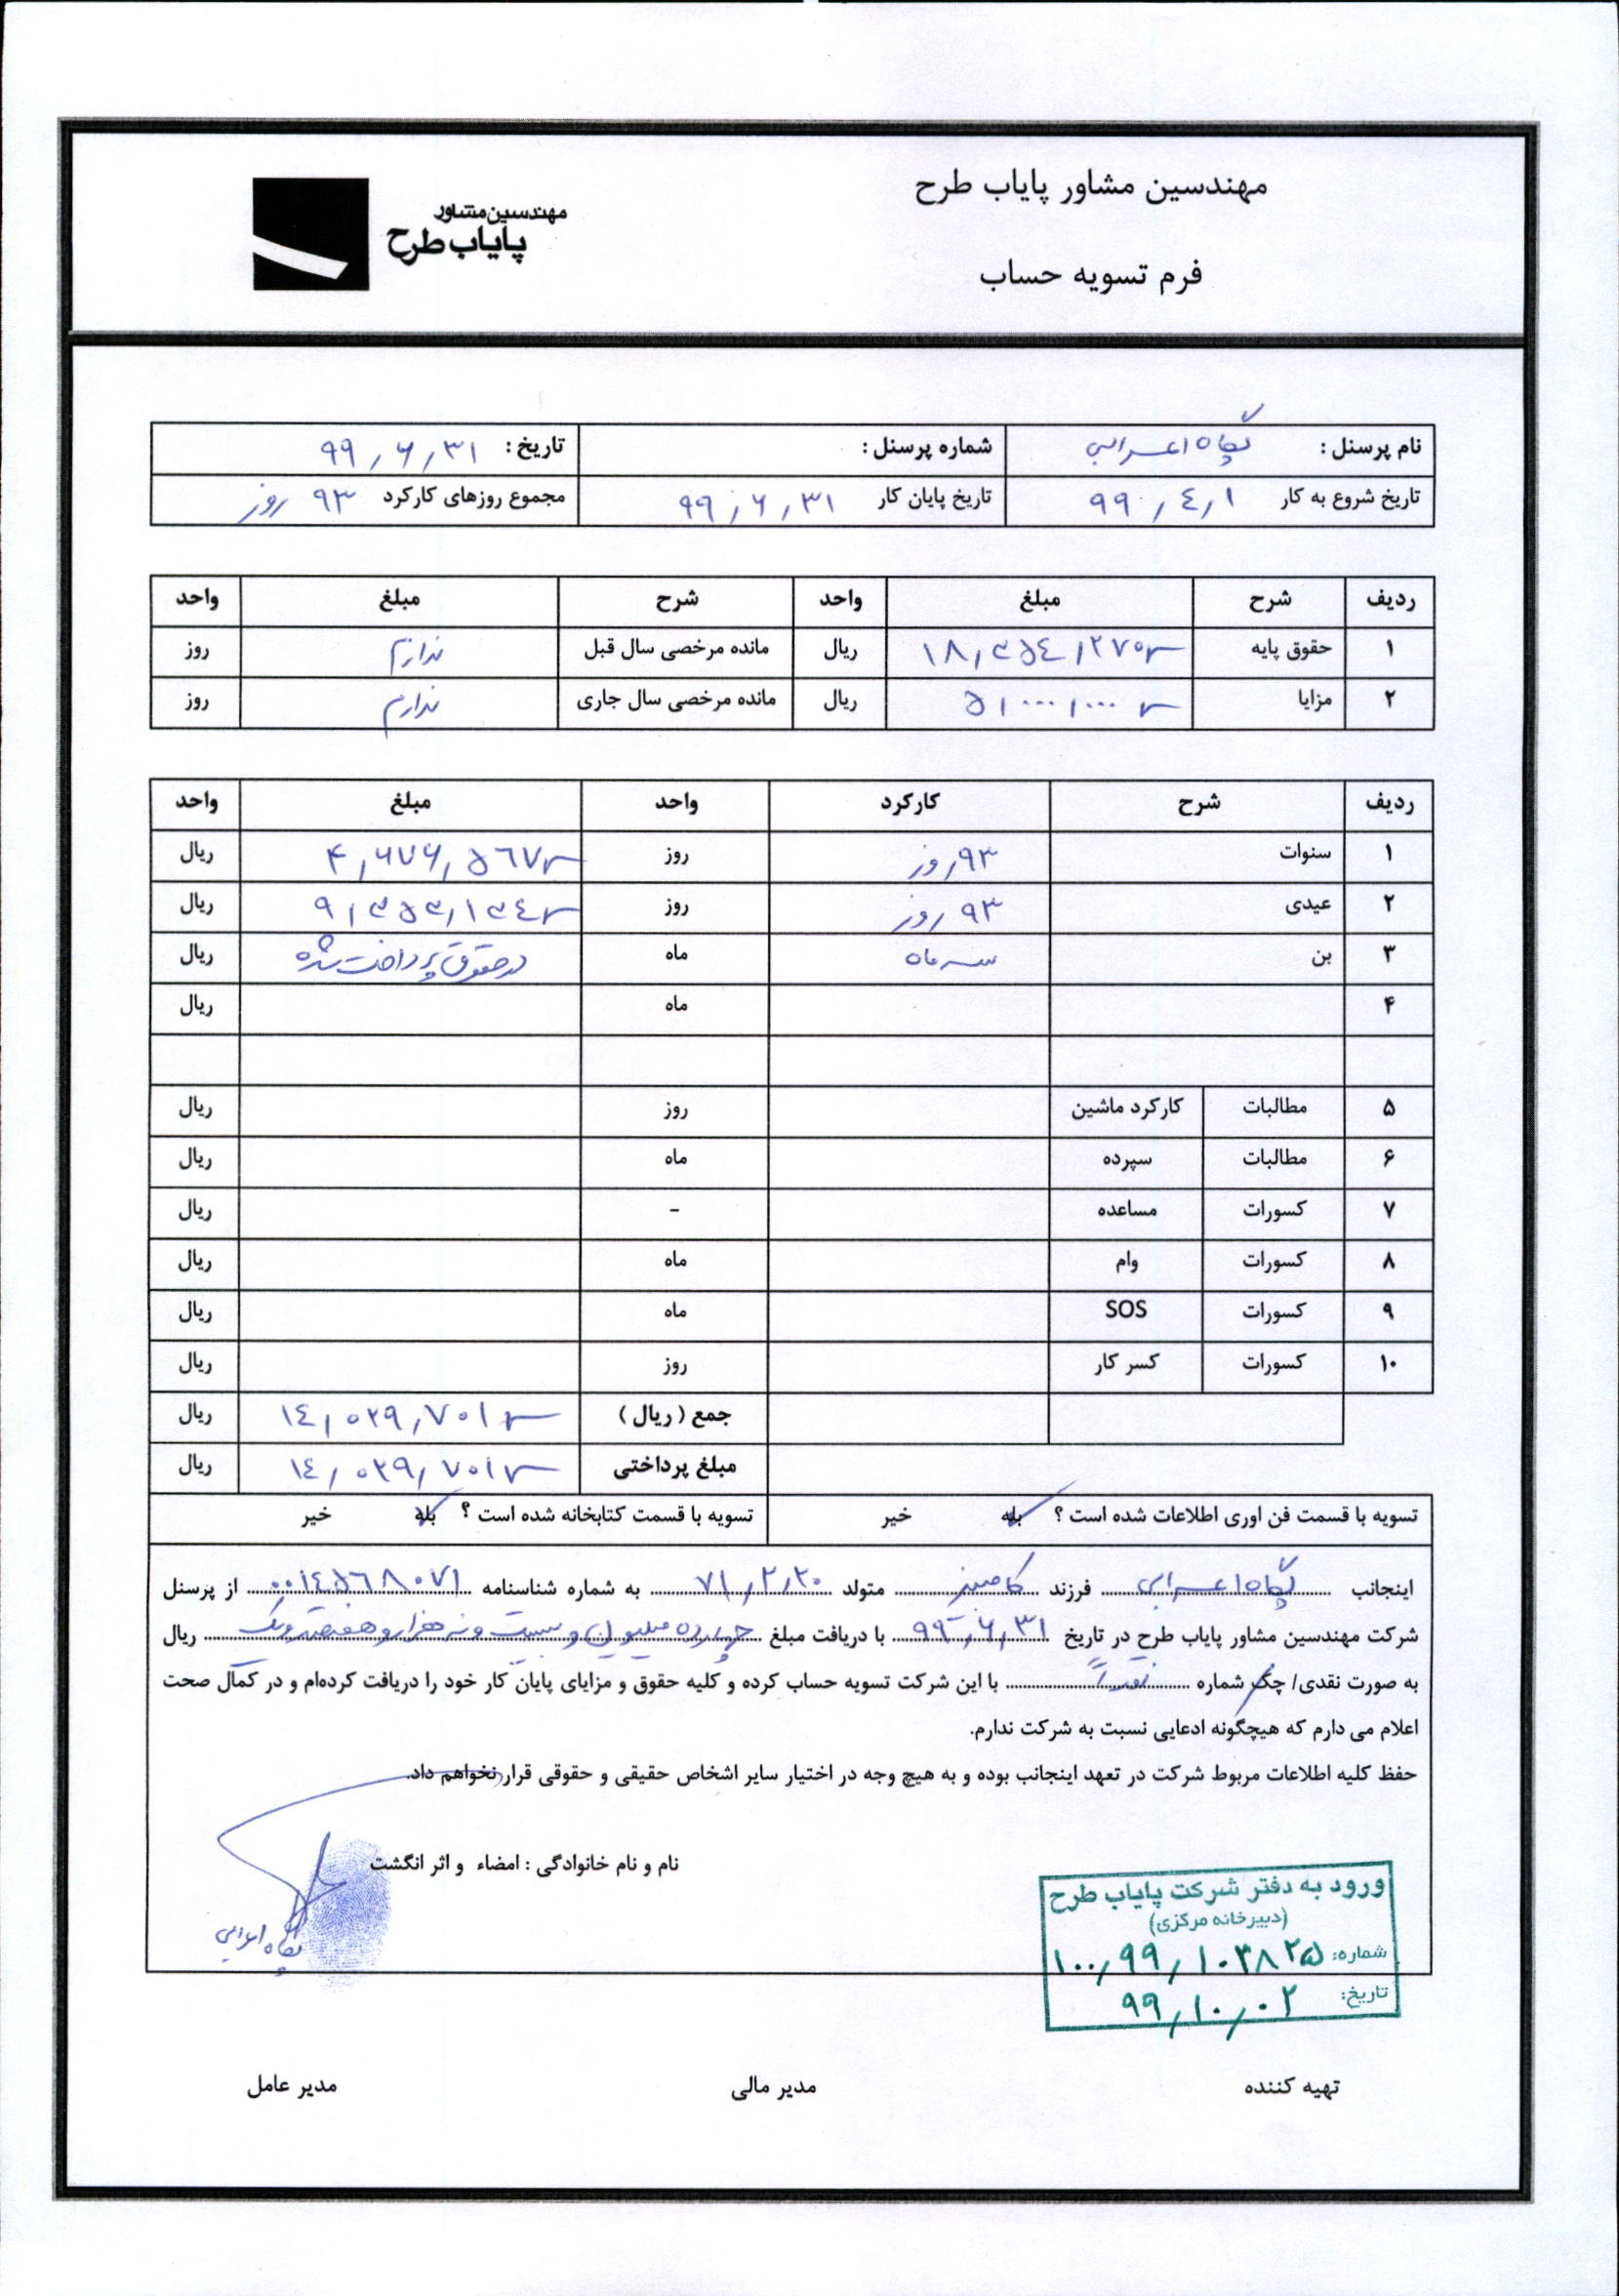 مهندسین مشاور پایاب طرح
مهندسین مشاور
پایاب طرح
فرم تسویه حساب
نام پرسنل : پگاه اعرابی شماره پرسنل : تاریخ : ۹۹/۶/۳۱
تاریخ شروع به کار ۹۹/۴/۱ تاریخ پایان کار ۹۹/۶/۳۱ مجموع روزهای کارکرد ۹۳ روز
ردیف شرح مبلغ واحد شرح مبلغ واحد
۱ حقوق پایه ۱۸,۳۵۴,۲۷۰ ریال مانده مرخصی سال قبل ندارم روز
۲ مزایا ۵,۰۰۰,۰۰۰ ریال مانده مرخصی سال جاری ندارم روز
ردیف شرح کارکرد واحد مبلغ واحد
۱ سنوات ۹۳ روز روز ۴,۶۷۶,۵۶۷ ریال
۲ عیدی ۹۳ روز روز ۹,۳۵۳,۱۳۴ ریال
۳ بن سه ماه ماه در حقوق پرداخت شده ریال
۴ ماه ریال
۵ مطالبات کارکرد ماشین روز ریال
۶ مطالبات سپرده ماه ریال
۷ کسورات مساعده - ریال
۸ کسورات وام ماه ریال
۹ کسورات SOS ماه ریال
۱۰ کسورات کسر کار روز ریال
جمع ( ریال ) ۱۴,۰۲۹,۷۰۱ ریال
مبلغ پرداختی ۱۴,۰۲۹,۷۰۱ ریال
تسویه با قسمت فن اوری اطلاعات شده است ؟ بله خیر تسویه با قسمت کتابخانه شده است ؟ بله خیر
اینجانب پگاه اعرابی فرزند کامبیز متولد ۷۱/۲/۲۰ به شماره شناسنامه ۰۰۱۴۵۶۸۰۷۱ از پرسنل
شرکت مهندسین مشاور پایاب طرح در تاریخ ۹۹/۶/۳۱ با دریافت مبلغ چهارده میلیون و بیست و نه هزار و هفتصد و یک ریال
به صورت نقدی/ چک شماره نقداً با این شرکت تسویه حساب کرده و کلیه حقوق و مزایای پایان کار خود را دریافت کرده‌ام و در کمال صحت
اعلام می دارم که هیچگونه ادعایی نسبت به شرکت ندارم.
حفظ کلیه اطلاعات مربوط شرکت در تعهد اینجانب بوده و به هیچ وجه در اختیار سایر اشخاص حقیقی و حقوقی قرار نخواهم داد.
نام و نام خانوادگی : امضاء و اثر انگشت
پگاه اعرابی
ورود به دفتر شرکت پایاب طرح
(دبیرخانه مرکزی)
شماره: ۱۰۰/۹۹/۱۰۳۸۲۵
تاریخ: ۹۹/۱۰/۰۲
تهیه کننده مدیر مالی مدیر عامل